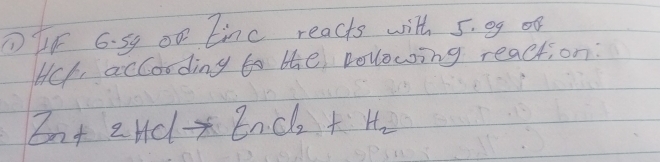 ① IF 6.5g of Zinc reacts with 5.0g of
HCl, according to the following reaction:
Zn + 2HCl → ZnCl₂ + H₂